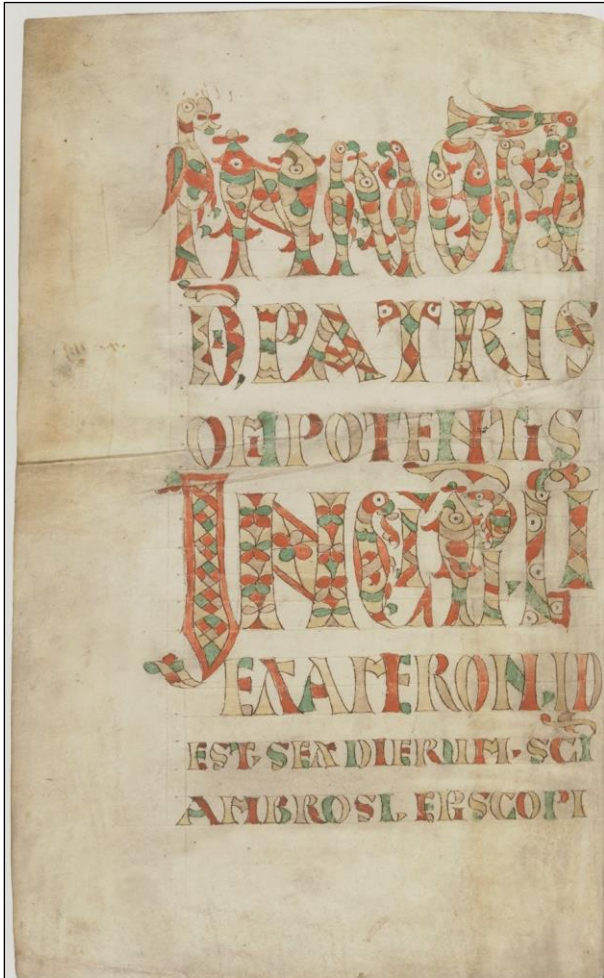 IN NOM̅
D̅I PATRIS
OMPOTENTIS
INCIP̅. LI̅
EXAMERON. ID
EST. SEX DIERUM. SC̅I
AMBROSI. EPISCOPI